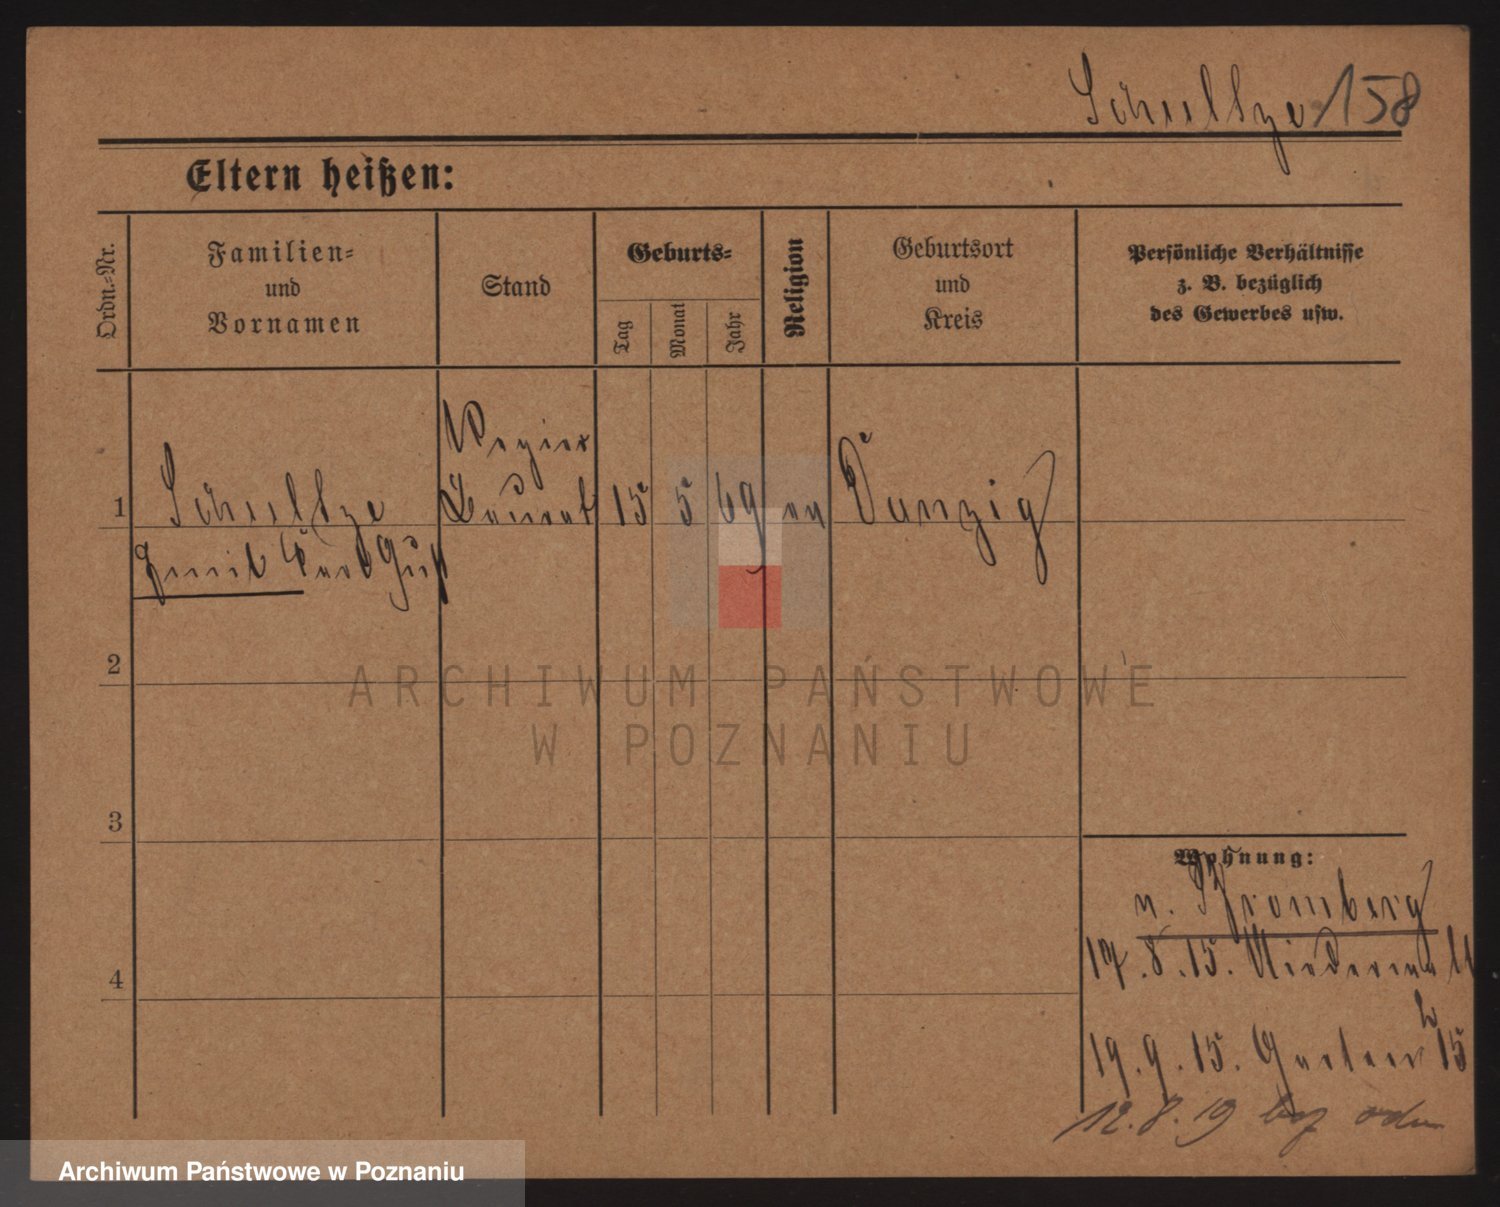 Schultze 158
Eltern heißen:
Ordn.-Nr.
Familien- und Vornamen
Stand
Geburts-
Tag
Monat
Jahr
Religion
Geburtsort und Kreis
Persönliche Verhältnisse
z. B. bezüglich
des Gewerbes usw.
Regier
1 Schultze Baurat 15 5 69 ev Danzig
Emil Gust
2
3
4
Wohnung:
n. Bromberg
17.8.15.
19.9.15. Garten 15
12.8.19
ARCHIWUM PAŃSTWOWE
W POZNANIU
Archiwum Państwowe w Poznaniu